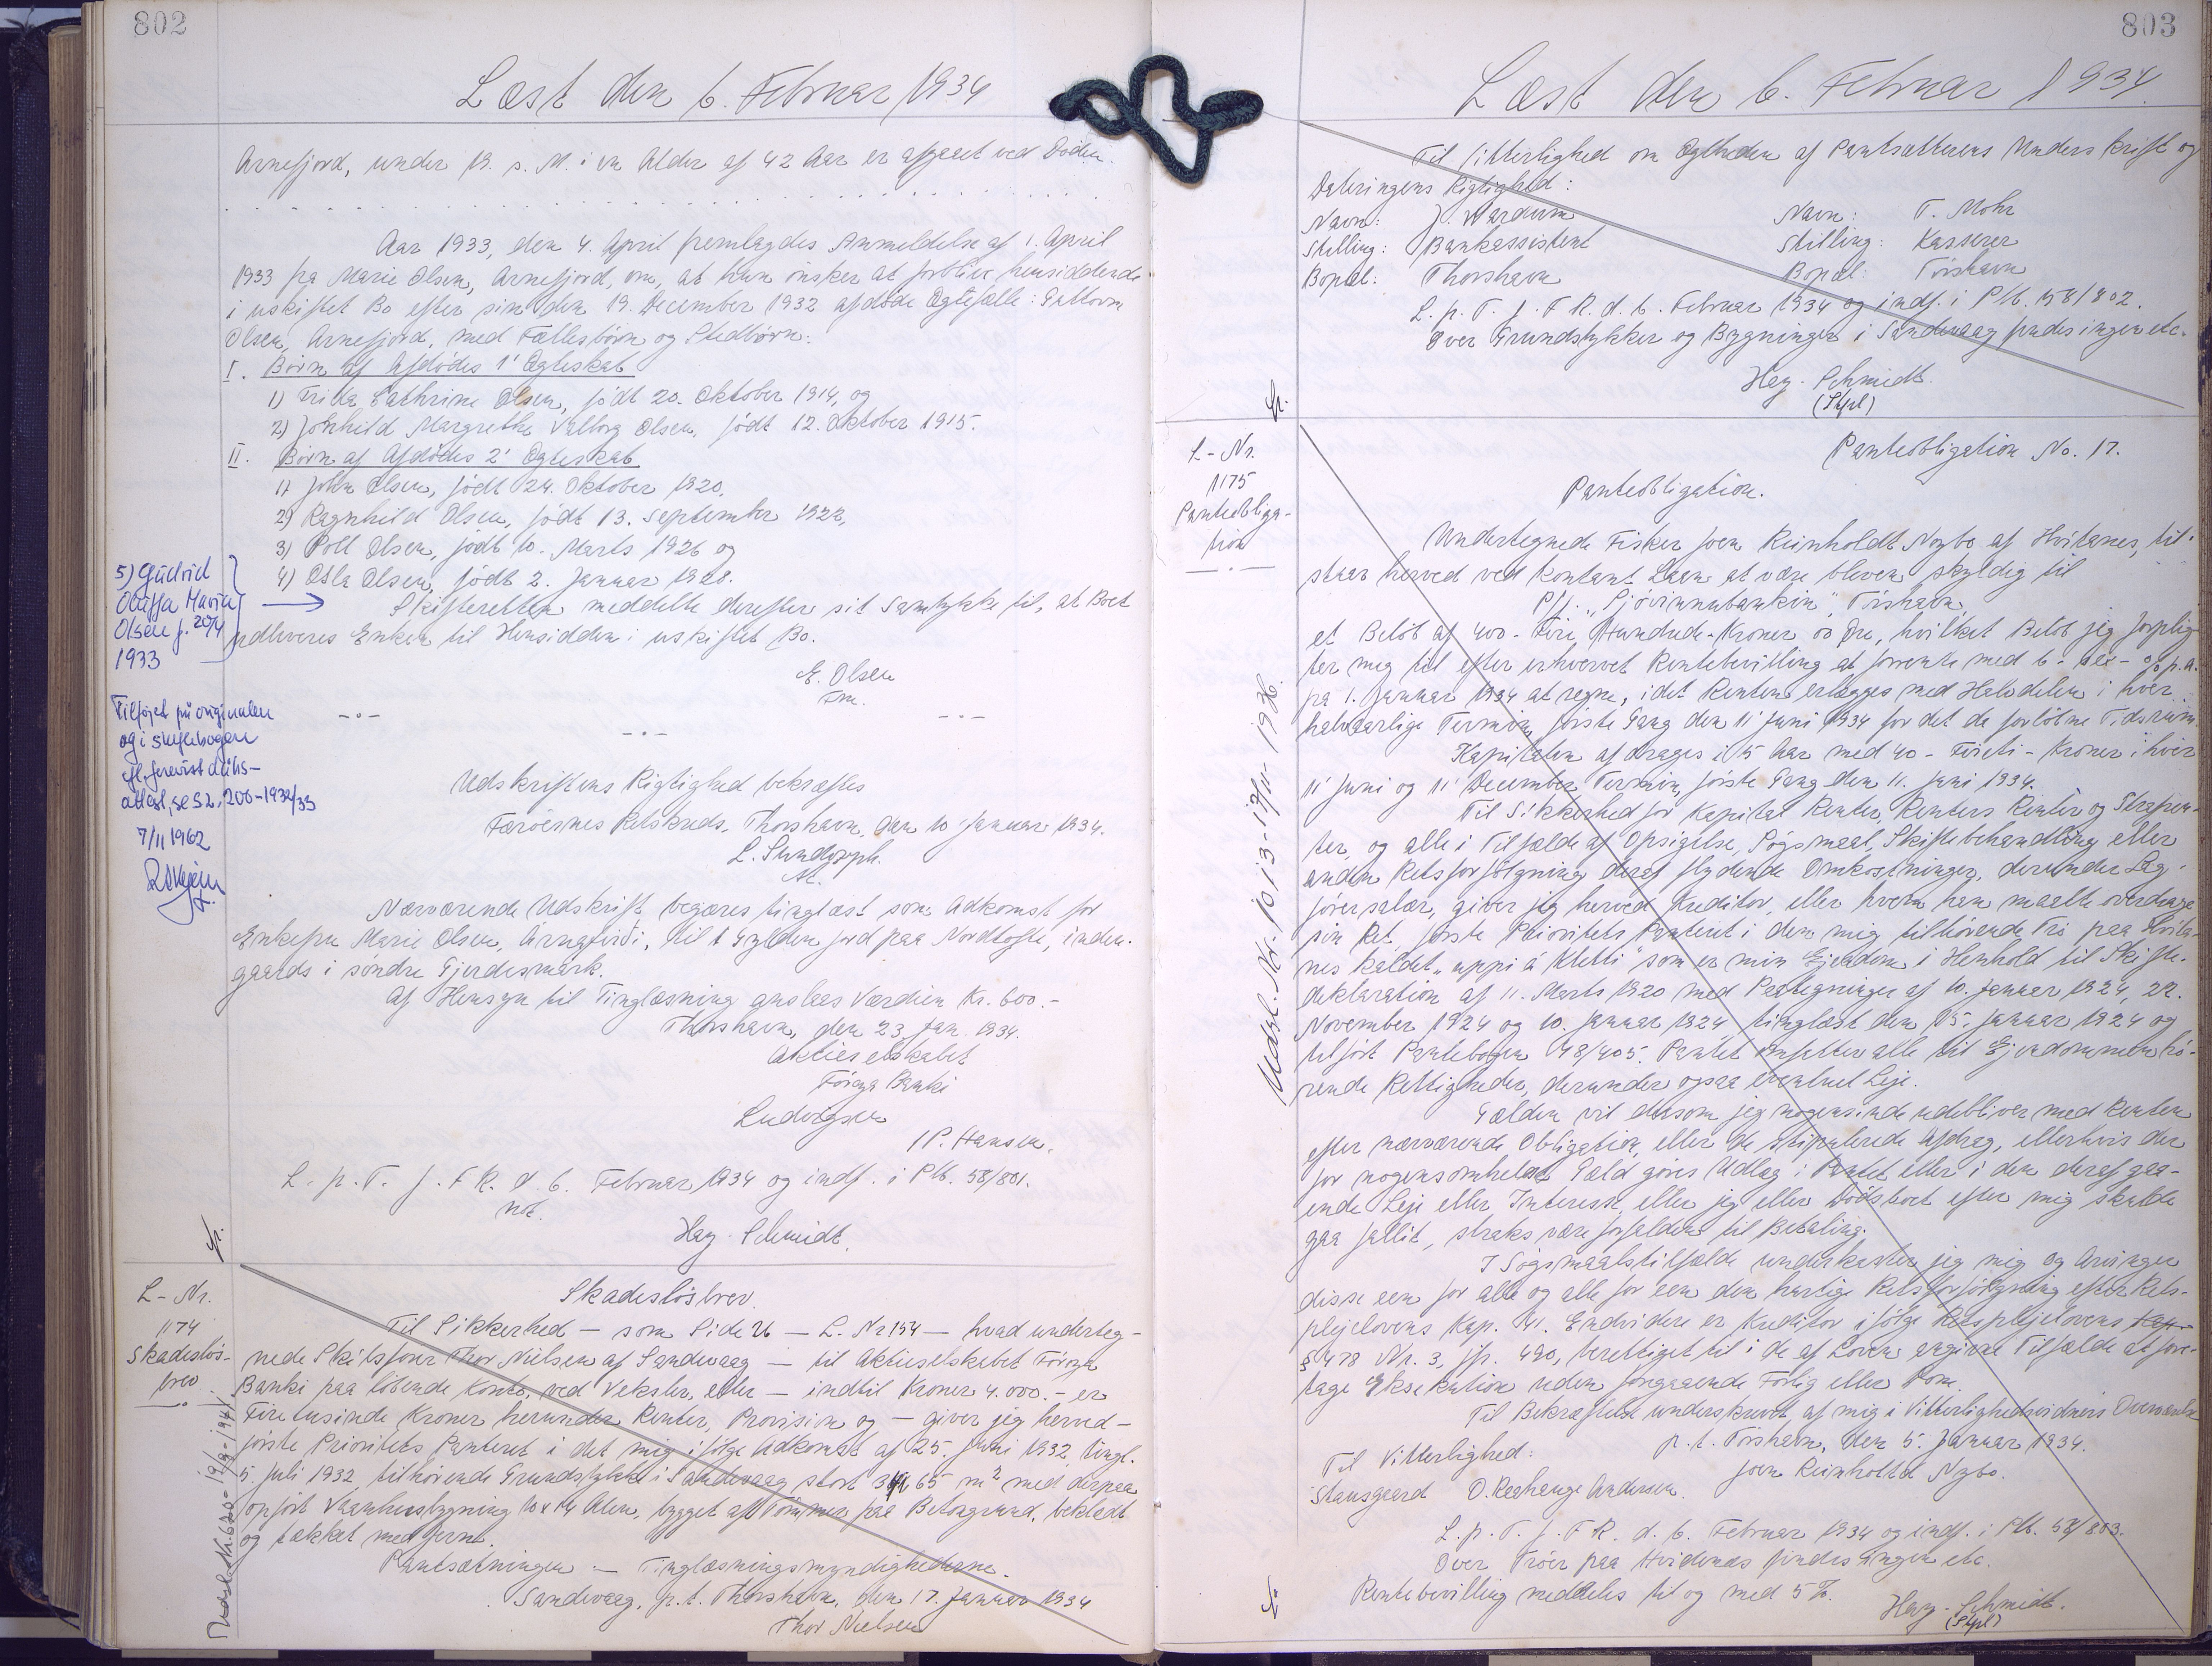 802
Læst den 6. Februar 1934
Arnefjord, under 19. s. M. i en Alder af 42 Aar er afgaaet ved Døden.
Aar 1933, den 4. April fremlagdes Anmeldelse af 1. April
1933 fra Marie Olsen, Arnefjord, om, at hun ønsker at forblive hensiddende
i uskiftet Bo efter sin den 19. December 1932 afdøde Ægtefælle: Guttorm
Olsen, Arnefjord, med Fællesbørn og Stedbørn:
I. Børn af Afdødes 1' Ægteskab
1) Frida Cathrine Olsen, født 20. Oktober 1914, og
2) Jórhild Margrethe Valborg Olsen, født 12. Oktober 1915.
II. Børn af Afdødes 2' Ægteskab
1) John Olsen, født 24. Oktober 1920,
2) Ragnhild Olsen, født 13. September 1922,
3) Poll Olsen, født 10. Marts 1926 og
4) Osla Olsen, født 2. Januar 1928.
5) Gudrid
Maria
Olsen f. 20/4
1933
Skifteretten meddelte derefter sit Samtykke til, at Boet
udleveres Enken til Hensidden i uskiftet Bo.
E. Olsen
Fm.
Tilføjet på originalen
og i skiftebogen
efl. forevist dåbs-
attest, se S.L. 200-1932/33
7/11 1962
Udskriftens Rigtighed bekræftes
Færøernes Retskreds, Thorshavn, den 10 Januar 1934.
L. Sundorph.
Nærværende Udskrift begæres tinglæst som Adkomst for
Enkefru Marie Olsen, Árnafirði, til 1 Gylden jord paa Nordtofte, inden-
gaards i søndre Gjerdesmark.
Af Hensyn til Tinglæsning anslaas Værdien Kr. 600.-
Thorshavn, den 23. Jan. 1934.
Aktieselskabet
Føroya Banki
Ludvigsen
/ P. Hansen.
L. p. T. f. F R. d. 6. Februar 1934 og indf. i Pb. 58/801.
Hay-Schmidt.
L-Nr.
1174
Skadesløs-
brev
Skadesløsbrev.
Til Sikkerhed — som Side 26 — L. Nr 154 — hvad underteg-
nede Skibsfører Thor Nielsen af Sandevaag — til Aktieselskabet Føroya
Banki paa løbende Konto, ved Veksler, eller — indtil Kroner 4.000.- er
Fire tusinde Kroner herunder Renter, Provision og — giver jeg herved —
første Prioritets Panteret i det mig ifølge Adkomst af 25. Juni 1932, tingl.
5. Juli 1932, tilhørende Grundstykke i Sandevaag stort 65 m² med derpaa
opført Vaaningsbygning 10 x 14 Alen, bygget af Tømmer paa Betongrund, beklædt
og tækket med Jern.
Pantsætningen — Tinglæsningsmyndighederne.
Sandevaag, p. t. Thorshavn, den 17. Januar 1934
Thor Nielsen
803
Læst den 6. Februar 1934.
Til Vitterlighed om Ægtheden af Pantsætterens Underskrift og
Dateringens Rigtighed:
Navn: J. Wardum Navn: T. Mohr
Stilling: Bankassistent Stilling: Kasserer
Bopæl: Thorshavn Bopæl: Tórshavn
L. p. T. f. F R. d. 6. Februar 1934 og indf. i Pb. 58/802.
Over Grundstykker og Bygninger i Sandevaag findes ingen etc.
Hay-Schmidt.
(Stpl)
L-Nr.
1175
Panteobliga-
tion
Udsl. Nr. 1013 - 19/11-1936.
Panteobligation No. 17.
Panteobligation.
Undertegnede Fisker Joen Reinholdt Nygbo af Hvitanes, til-
staar herved ved kontant Laan at være bleven skyldig til
P/f. "Sjóvinnubankin", Tórshavn,
et Beløb af 400 - Fire Hundrede - Kroner 00 Øre, hvilket Beløb jeg forplig-
ter mig til efter erhvervet Rentebevilling at forrente med 6 - sex - % p.a.
fra 1. Januar 1934 at regne, idet Renten erlægges med Halvdelen i hver
halvaarlige Termin, første Gang den 11' Juni 1934 for det da forløbne Tidsrum.
Kapitalen afdrages i 5 Aar med 40 - Fireti - Kroner i hver
11' Juni og 11' December Termin, første Gang den 11. Juni 1934.
Til Sikkerhed for Kapital Renter, Renters Renter og Strafren-
ter, og alle i Tilfælde af Opsigelse, Søgsmaal, Skiftebehandling eller
anden Retsforfølgning deraf flydende Omkostninger, derunder Sag-
førersalær, giver jeg herved Kreditor, eller hvem han maatte overdrage
sin Ret, første Prioritets Panteret i den mig tilhørende Trø paa Hvita-
nes kaldet "uppi á Kletti" som er min Ejendom i Henhold til Skifte-
deklaration af 11. Marts 1920 med Paategninger af 10. Januar 1924, 22.
November 1924 og 10. Januar 1924, tinglæst den 15. Januar 1924 og
tilført Pantebogen 48/405. Pantet omfatter alle til Ejendommen hø-
rende Rettigheder, derunder ogsaa eventuel Leje.
Gælden vil dersom jeg nogensinde udebliver med Renten
efter nærværende Obligation, eller de stipulerede Afdrag, eller hvis der
for nogensomhelst Gæld gøres Udlæg i Pantet eller i den deraf gaa-
ende Leje eller Interesse, eller jeg eller Dødsboet efter mig skulde
gaa fallit, straks være forfalden til Betaling.
I Søgsmaalstilfælde underkaster jeg mig og Arvinger
disse een for alle og alle for een den hurtige Retsforfølgning efter Rets-
plejelovens Kap. 41. Endvidere er Kreditor ifølge Retsplejelovens Kap.
§ 478 Nr. 3, jfr. 490, berettiget til i de af Loven angivne Tilfælde at fore-
tage Eksekution uden foregaaende Forlig eller Dom.
Til Bekræftelse underskrevet af mig i Vitterlighedsvidners Overværelse
p. t. Tórshavn, den 5. Januar 1934.
Til Vitterlighed: Joen Reinholtd Nygbo.
Stausgaard Andersen.
L. p. T. f. F R. d. 6. Februar 1934 og indf. i Pb. 58/803.
Over Trøer paa Hvidenæs findes ingen etc.
Rentebevilling meddeles til og med 5 %.
Hay-Schmidt.
(Stpl)